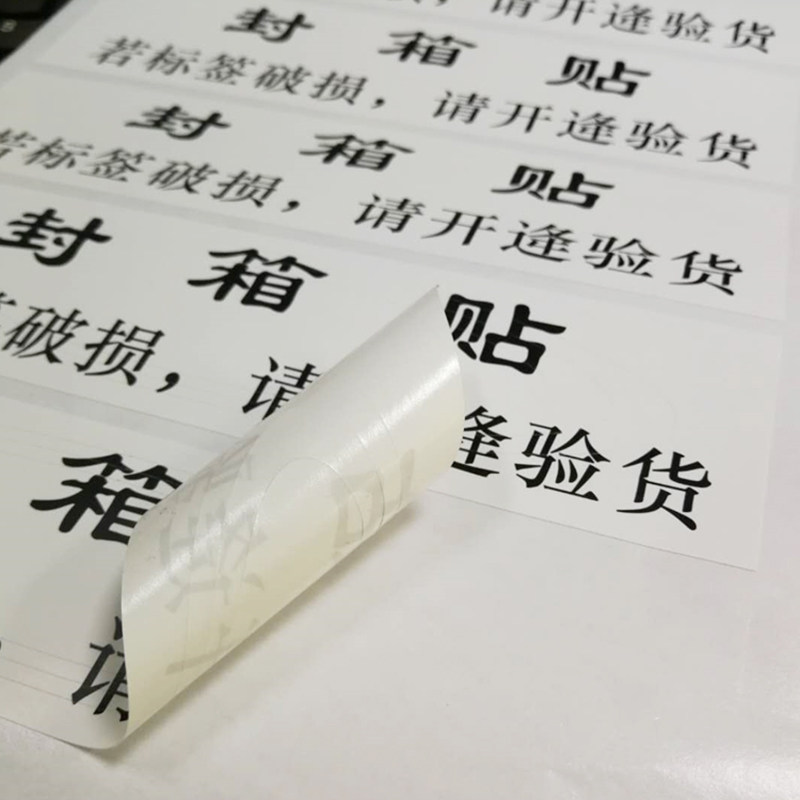 请开逢验货
封 箱 贴
若标签破损，请开逢验货
封 箱 贴
若标签破损，请开逢验货
封 箱 贴
破损，请 逢验货
箱
请